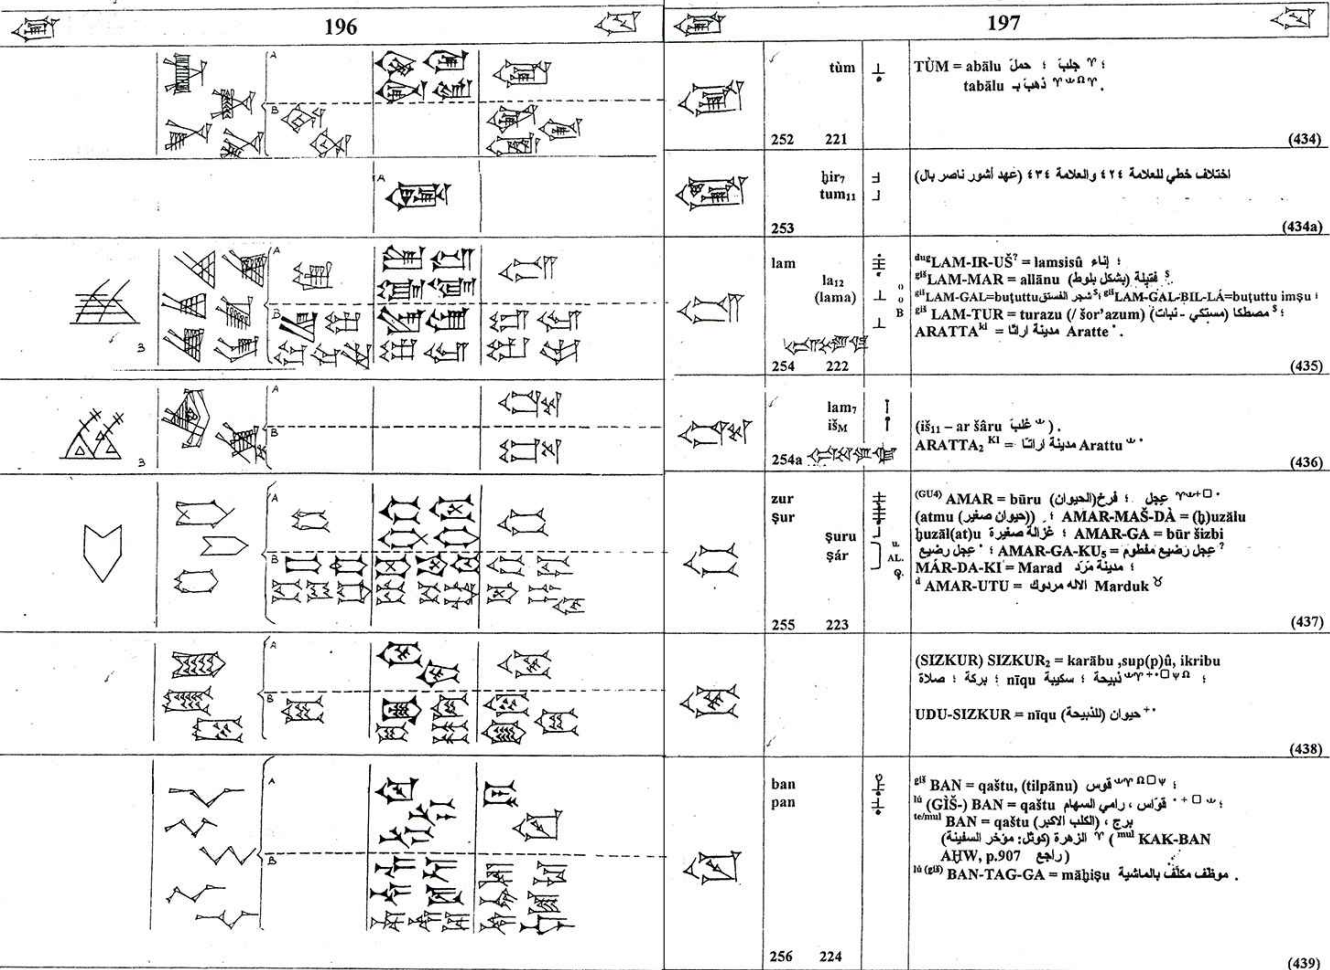 196
A
B
A
A
B
B
A
B
B
A
B
A
B
A
B
197
tùm
TÙM = abālu جلبَ ؛ حملَ ؛
tabālu ذهبَ بـ .
252 221
(434)
ḫir₇
tum₁₁
اختلاف خطي للعلامة ٤٢٤ والعلامة ٤٣٤ (عهد أشور ناصر بال)
253
(434a)
lam
la₁₂
(lama)
ᵈᵘᵍLAM-IR-UŠ? = lamsisû إناء ؛
ᵍⁱˢLAM-MAR = allānu (بشكل بلوط) فتيلة
LAM-GAL=buṭuttu شجر الفستق ؛ LAM-GAL-BIL-LÁ=buṭuttu imṣu ؛
LAM-TUR = turazu (/ šor'azum) (مستكي - نبات) مصطكا ؛
ARATTAᵏⁱ = مدينة اراتّا Aratte .
254 222
(435)
lam₇
iš_M
(iš₁₁ – ar šâru غلبَ ) .
ARATTA₂ ᴷᴵ = مدينة اراتّا Arattu
254a
(436)
zur
ṣur
ṣuru
ṣár
u.
AL.
Q.
(GU4) AMAR = būru (الحيوان) فرخ ؛ عجل
(atmu (حيوان صغير)) ؛ AMAR-MAŠ-DÀ = (ḫ)uzālu
ḫuzāl(at)u غزالة صغيرة ؛ AMAR-GA = būr šizbi
عجل رضيع ؛ AMAR-GA-KU₅ = عجل رضيع مفطوم ?
MÁR-DA-KI = Marad مدينة مَرَد ؛
ᵈ AMAR-UTU = الاله مردوك Marduk
255 223
(437)
(SIZKUR) SIZKUR₂ = karābu ,sup(p)û, ikribu
بركة ؛ صلاة ؛ nīqu ذبيحة ؛ سكيبة ؛
UDU-SIZKUR = nīqu حيوان (للذبيحة)
(438)
ban
pan
BAN = qaštu, (tilpānu) قوس ؛
ˡᵘ (GÌŠ-) BAN = qaštu قوّاس ، رامي السهام ؛
te/mul BAN = qaštu برج ، (الكلب الاكبر)
(كوثل: مؤخر السفينة) الزهرة ( mul KAK-BAN
AḪW, p.907 راجع )
BAN-TAG-GA = māḫiṣu موظف مكلّف بالماشية .
256 224
(439)